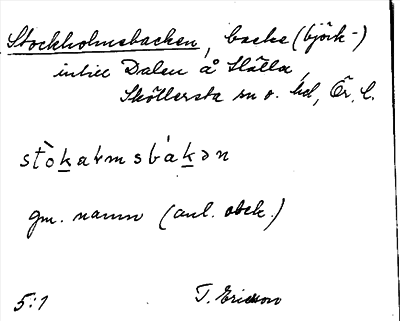 Stockholmsbacken, backe (björk-)
intill Dalen å Hälla,
Sköllersta sn o. hd, Ör. l.
stòkaɫmsbákən
gm. namn (anl. obek.)
5:1 T. Ericsson